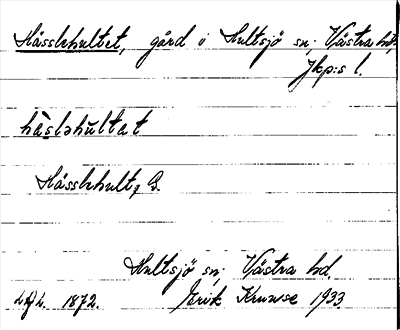 Hässlehultet, gård i Hultsjö sn; Västra hd;
Jkp:s l.
hàsləhúltət
Hässlehult, B.
Hultsjö sn; Västra hd.
1872. Erik Kruuse 1933.